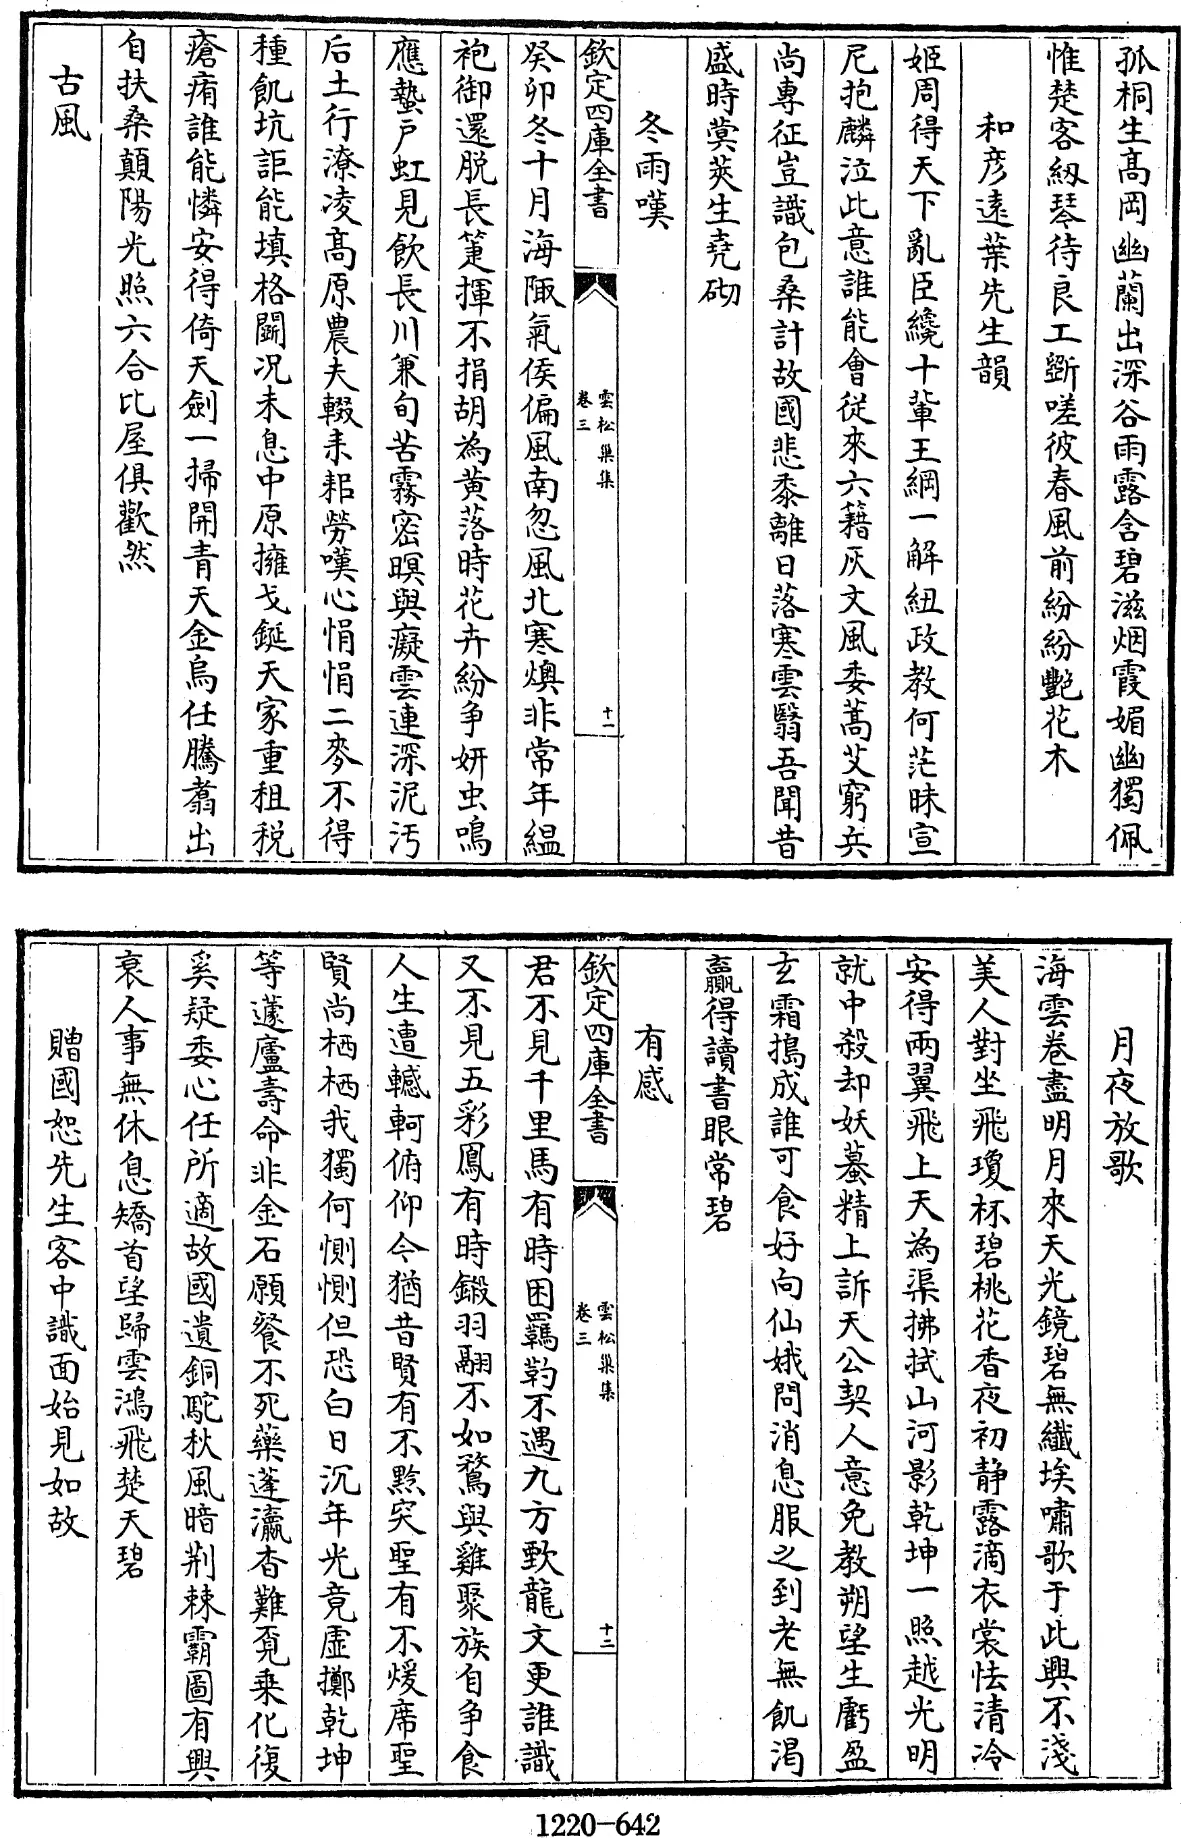 孤桐生髙岡幽蘭出深谷雨露含碧滋烟霞媚幽獨佩
惟楚客紉琴待良工斵嗟彼春風前紛紛艷花木
和彦逺葉先生韻
姬周得天下亂臣纔十輩王綱一解紐政教何茫昧宣
尼抱麟泣此意誰能會從來六籍灰文風委蒿艾窮兵
尚專征豈識包桑計故國悲黍離日落寒雲翳吾聞昔
盛時蓂莢生堯砌
冬雨嘆
欽定四庫全書
雲松巢集
卷三
十一
癸卯冬十月海陬氣侯偏風南忽風北寒燠非常年緼
袍御還脱長箑揮不捐胡為黄落時花卉紛争妍虫鳴
應蟄戸虹見飲長川兼旬苦霧宻暝與癡雲連深泥汚
后土行潦凌髙原農夫輟耒耜勞嘆心悁悁二麥不得
種飢坑詎能填格鬭况未息中原擁戈鋋天家重租税
瘡痏誰能憐安得倚天劍一掃開青天金烏任騰翥出
自扶桑顛陽光照六合比屋俱歡然
古風
月夜放歌
海雲卷盡明月來天光鏡碧無纖埃嘯歌于此興不淺
美人對坐飛瓊杯碧桃花香夜初静露滴衣裳怯清冷
安得兩翼飛上天為渠拂拭山河影乾坤一照越光明
就中殺却妖蟇精上訴天公契人意免教朔望生虧盈
玄霜搗成誰可食好向仙娥問消息服之到老無飢渴
贏得讀書眼常碧
有感
欽定四庫全書
雲松巢集
卷三
十二
君不見千里馬有時困羈靮不遇九方歅龍文更誰識
又不見五彩鳳有時鍛羽翮不如鶩與雞聚族自争食
人生遭轗軻俯仰今猶昔賢有不黔突聖有不煖席聖
賢尚栖栖我獨何惻惻但恐白日沉年光竟虛擲乾坤
等蘧廬壽命非金石願餐不死藥蓬瀛杳難覓乗化復
奚疑委心任所適故國遺銅駝秋風暗荆棘霸圖有興
衰人事無休息矯首望歸雲鴻飛楚天碧
贈國恕先生客中識面始見如故
1220-642